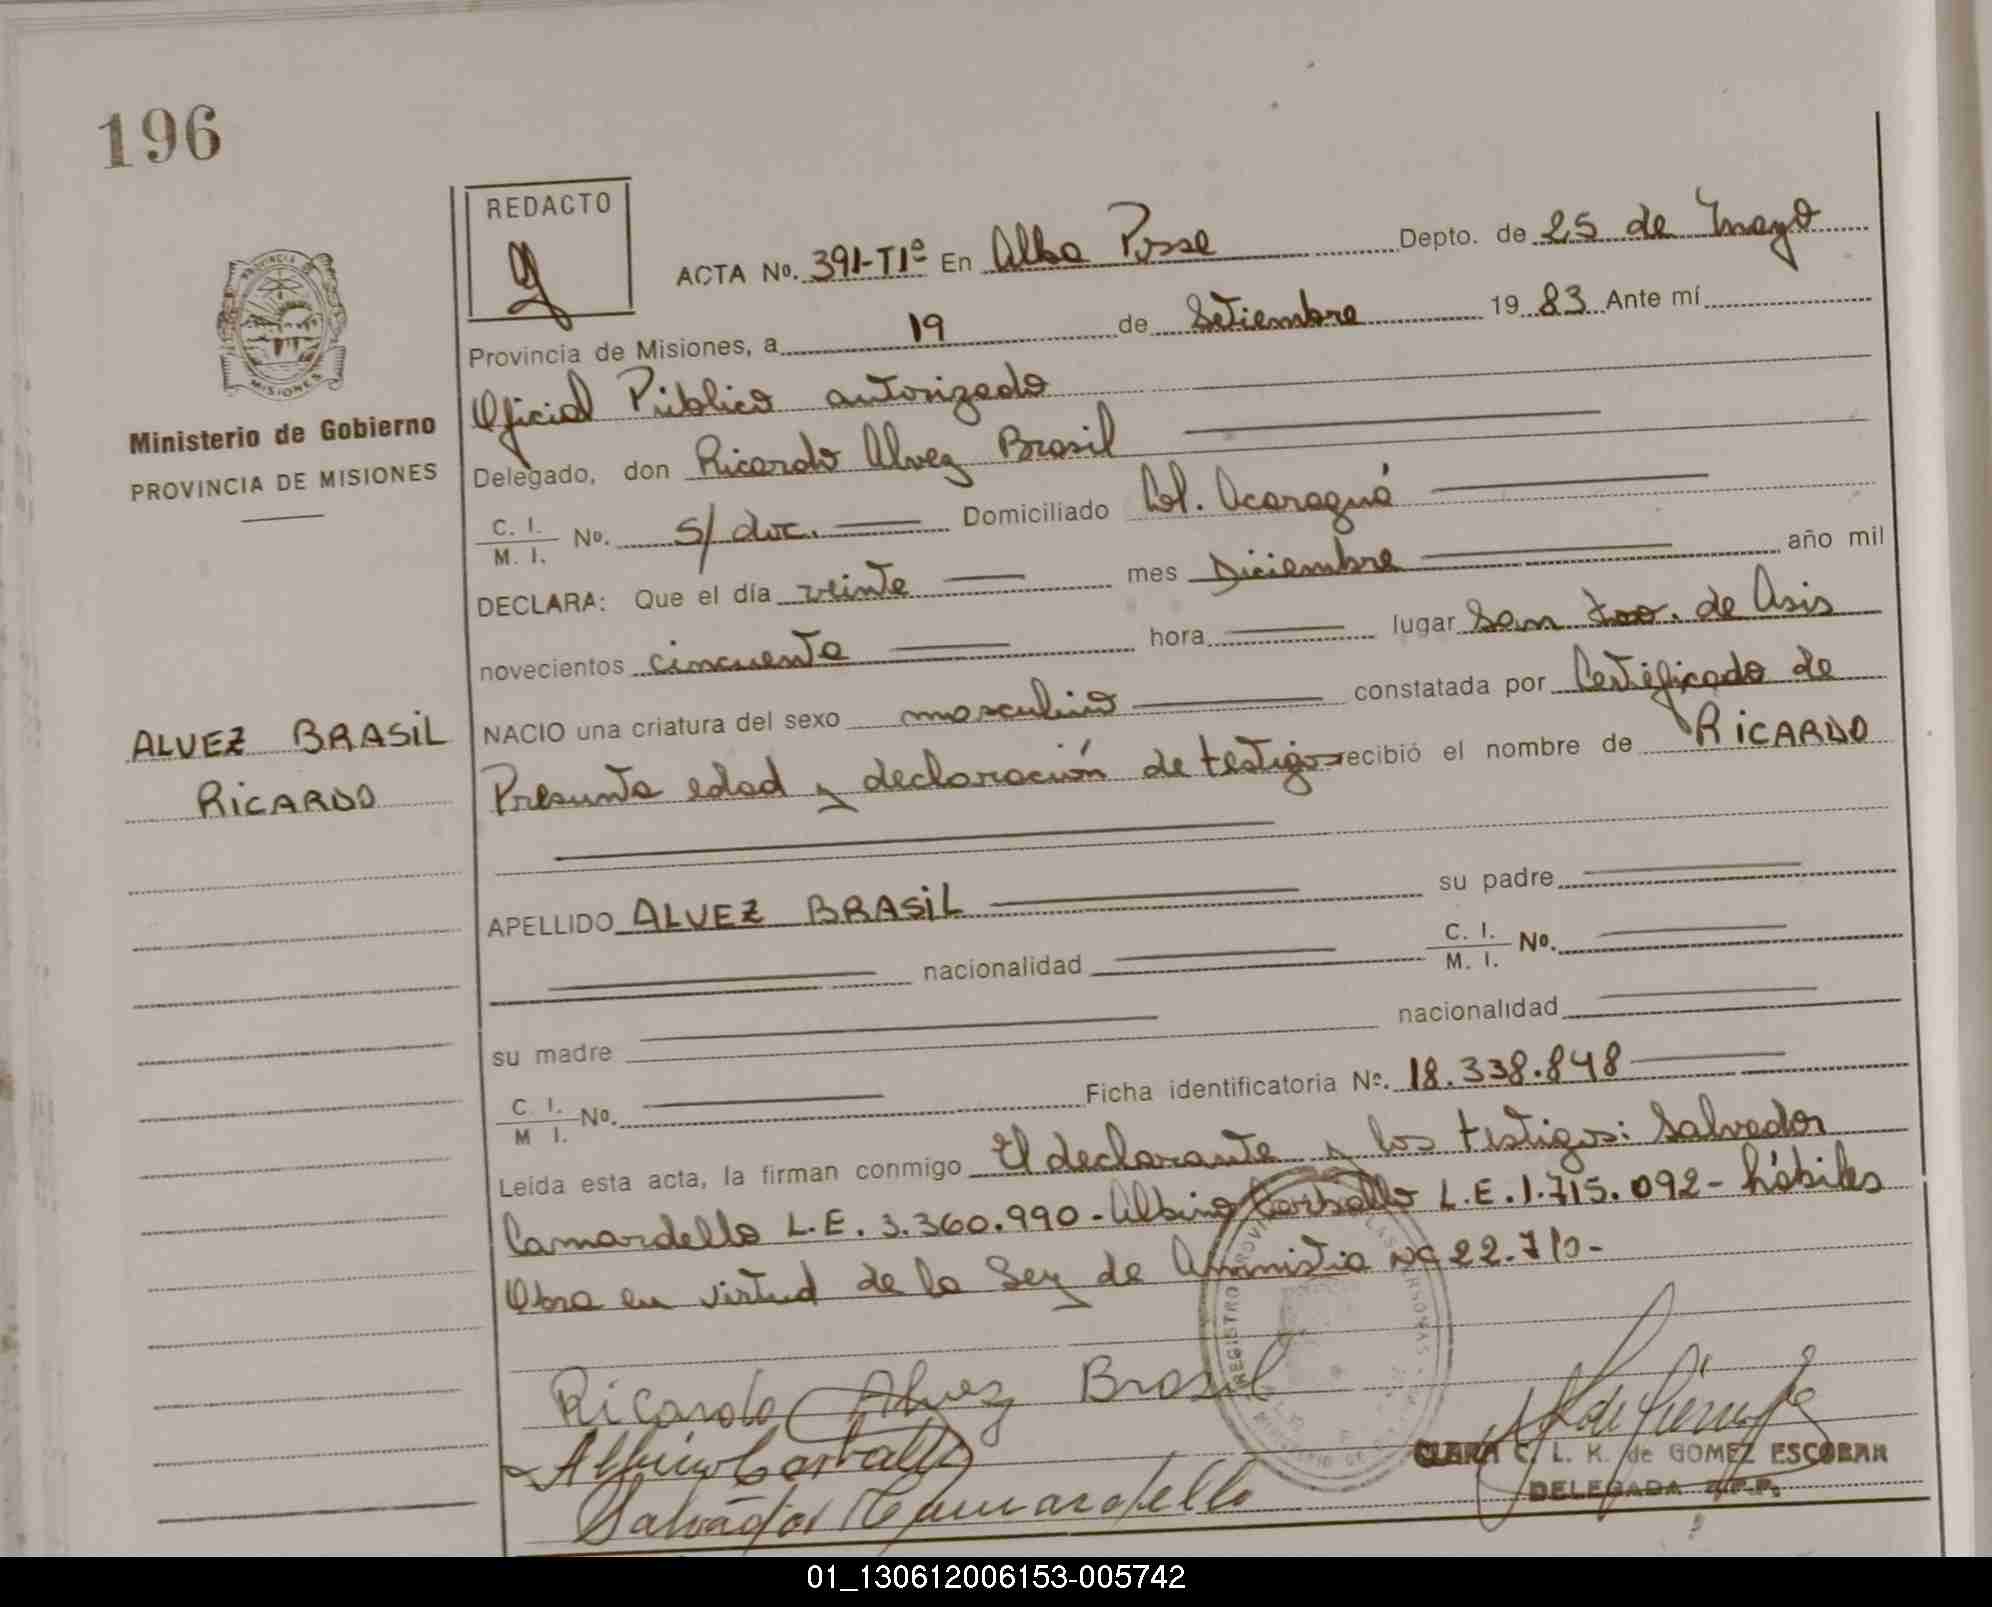 196
REDACTO
ACTA No. 391-T1º En Alba Posse Depto. de 25 de Mayo
Provincia de Misiones, a 19 de Setiembre 1983 Ante mí
Oficial Público autorizado
Delegado, don Ricardo Alvez Brasil
C. I. / M. I. No. s/ doc. Domiciliado Col. Acaraguá
DECLARA: Que el día veinte mes Diciembre año mil
novecientos cincuenta hora lugar San Fco. de Asis
NACIO una criatura del sexo masculino constatada por Certificado de
Presunta edad y declaración de testigos recibió el nombre de RICARDO
APELLIDO ALVEZ BRASIL su padre
nacionalidad C. I. / M. I. No.
su madre nacionalidad
C. I. / M I. No. Ficha identificatoria No. 18.338.848
Leida esta acta, la firman conmigo El declarante y los testigos: Salvador
Camardello L.E. 3.360.990 - Albino Carballo L.E. 1.715.092 - hábiles
Obra en virtud de la Ley de Amnistia No 22.710 -
Ricardo Alvez Brasil
Albino Carballo
Salvador Camardello
CLARA C. L. K. de GOMEZ ESCOBAR
DELEGADA R.P.P.
PROVINCIA DE
MISIONES
Ministerio de Gobierno
PROVINCIA DE MISIONES
ALVEZ BRASIL
RICARDO
REGISTRO PROVIN LAS PERSONAS
01_130612006153-005742